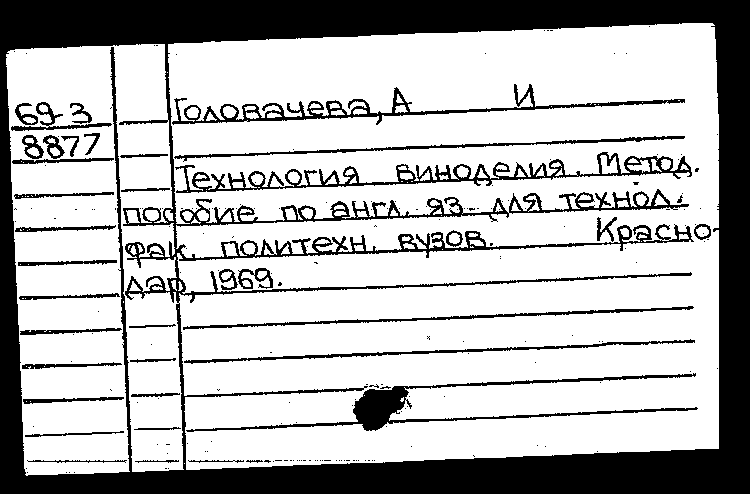 69-3
8877
Головачева, А И
Технология виноделия. Метод.
пособие по англ. яз. для технол.
фак. политехн. вузов. Красно-
дар, 1969.